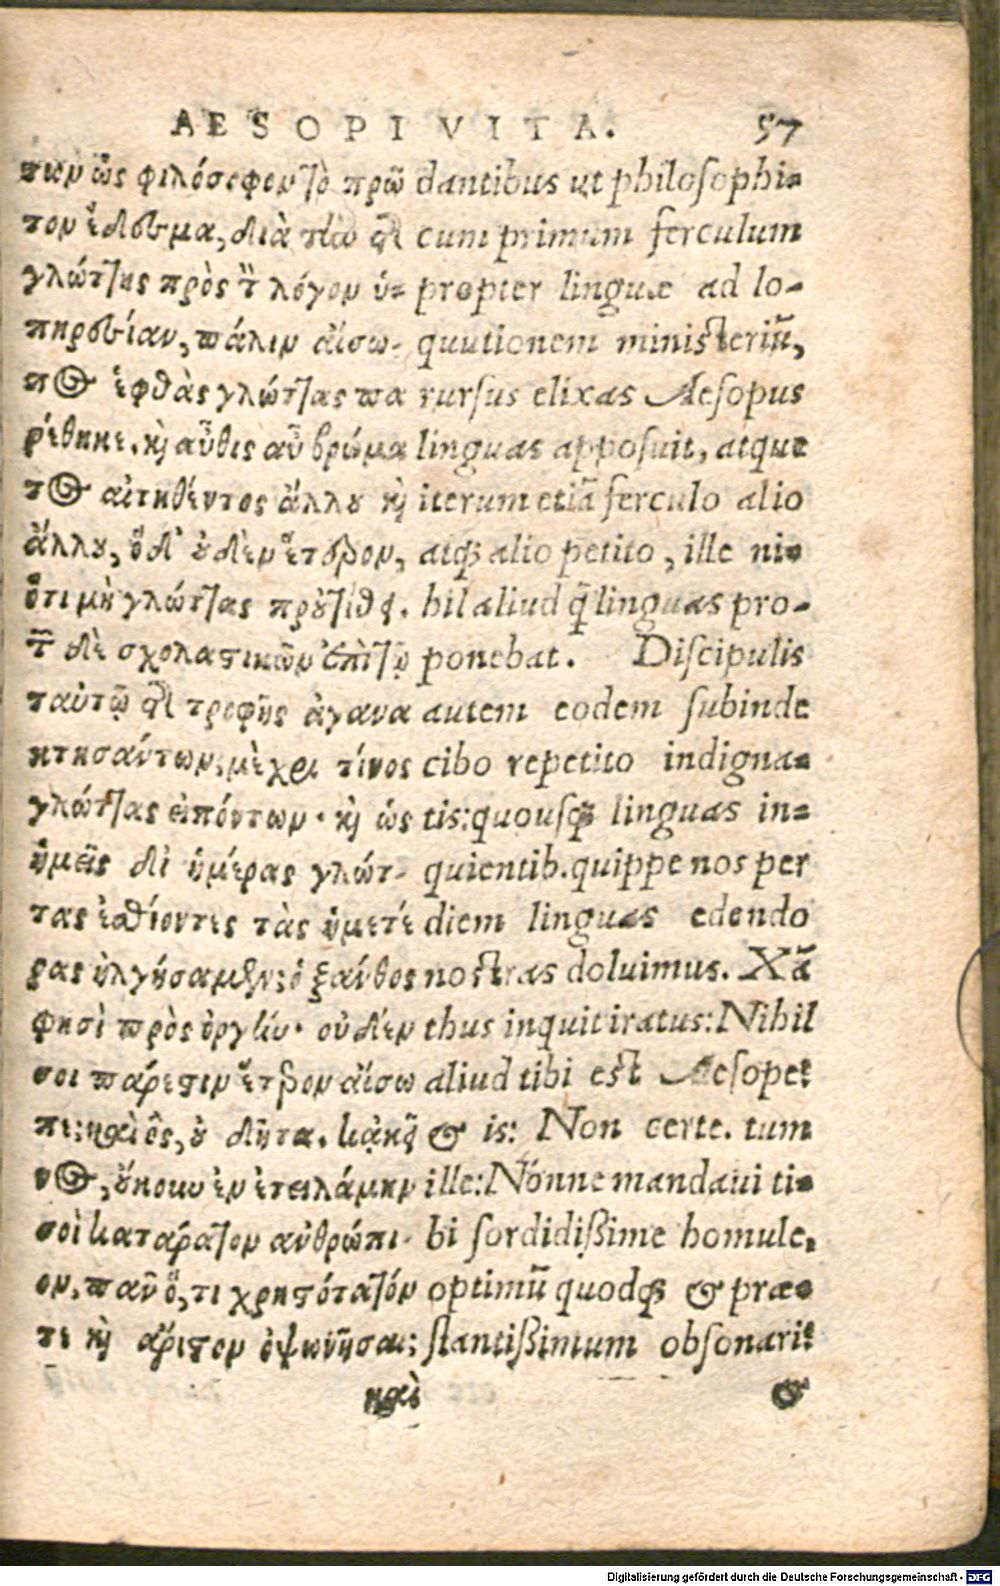 AESOPI VITA. 57
πων ὡς φιλόσοφον τὸ πρῶ
τον ἔδεσμα, διὰ τὴν τῆς
γλώττης πρὸς τ̃ λόγον ὑ-
πηρεσίαν, πάλιν αἴσω-
πος ἑφθὰς γλώττας πα
ρέθηκε. καὶ αὖθις αὖ βρώμα
τος αἰτηθέντος ἄλλου καὶ
ἄλλου, ὁ δ' οὐδὲν ἕτερον,
ὅτι μὴ γλώττας προὐτίθει.
τ̃ δὲ σχολαστικῶν ἐπὶ τῇ
ταὐτῷ τῆς τροφῆς ἀγανα
κτησάντων, μέχρι τίνος
γλώττας εἰπόντων· καὶ ὡς
ἡμεῖς δι' ἡμέρας γλώτ-
τας ἐσθίοντες τὰς ἡμετέ
ρας ἠλγήσαμεν; ὁ ξάνθος
φησὶ πρὸς ὀργὴν· οὐδέν
σοι πάρεστιν ἕτερον αἴσω
πε; καὶ ὃς, οὐ δῆτα. κἀκεῖ
νος, οὔκουν ἐνετειλάμην
σοὶ κατάρατον ἀνθρώπι-
ον, πᾶν ὅ, τι χρηστότατόν
τε καὶ ἄριστον ὀψωνῆσαι;
καὶ
dantibus ut philosophi-
cum primum ferculum
propter linguæ ad lo-
quutionem ministeriũ,
rursus elixas Aesopus
linguas apposuit, atque
iterum etiã ferculo alio
atq; alio petito, ille ni-
hil aliud q̃ linguas pro-
ponebat. Discipulis
autem eodem subinde
cibo repetito indigna-
tis: quousq; linguas in-
quientib. quippe nos per
diem linguas edendo
nostras doluimus. Xã
thus inquit iratus: Nihil
aliud tibi est Aesope?
& is: Non certe. tum
ille: Nónne mandaui ti-
bi sordidißime homule,
optimũ quodq; & præ-
stantißimum obsonari?
&
Digitalisierung gefördert durch die Deutsche Forschungsgemeinschaft - DFG